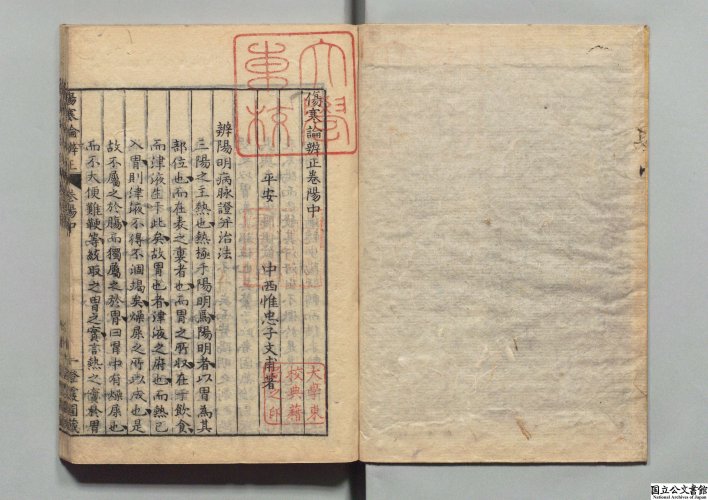 傷寒論辨正卷陽中
平安 中西惟忠子文甫著
辨陽明病脉證并治法
三陽之主熱也熱極乎陽明爲陽明者以胃爲其
部位也而在表之裏者也而胃之所收在乎飲食
而津液生于此矣故胃也者津液之府也而熱已
入胃則津液不得不涸竭矣燥屎之所以成也是
故不屬之於腸而獨屬之於胃曰胃中有燥屎也
而不大便難鞕等統取之胃之實言熱之實於胃
傷寒論辨正 卷陽中 一
文學東校
大學東校典籍
之印
国立公文書館
National Archives of Japan